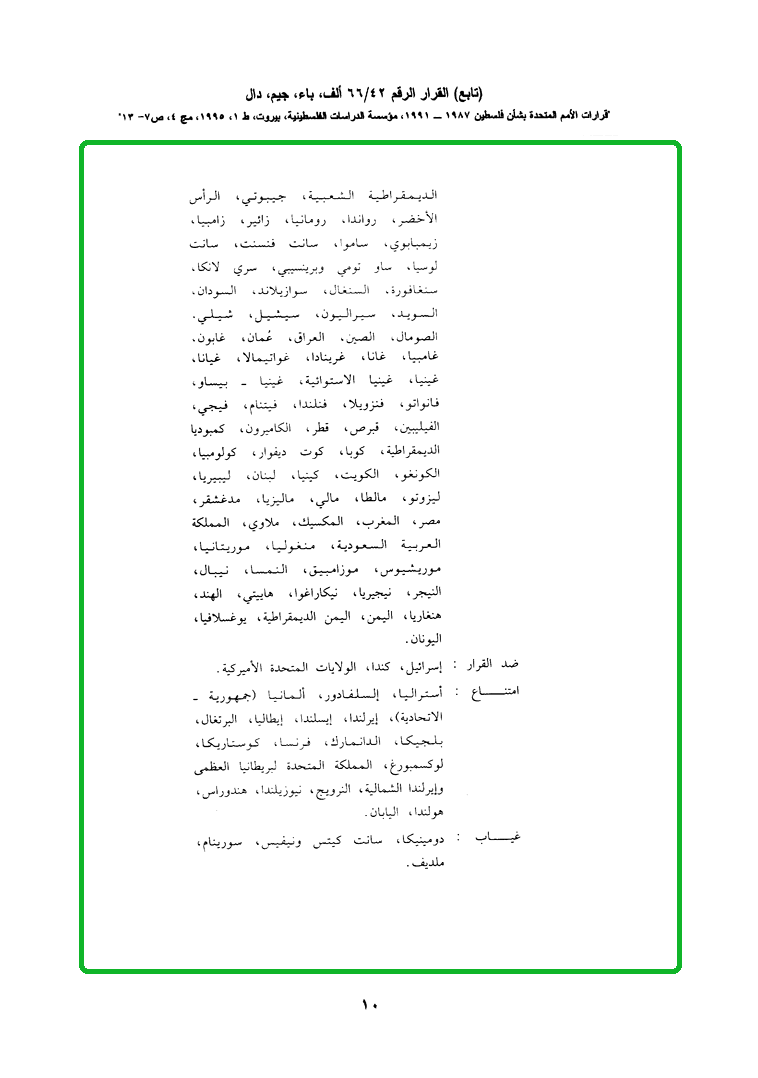 (تابع) القرار الرقم ٦٦/٤٢ ألف، باء، جيم، دال
"قرارات الأمم المتحدة بشأن فلسطين ١٩٨٧ ــ ١٩٩١، مؤسسة الدراسات الفلسطينية، بيروت، ط ١، ١٩٩٥، مج ٤، ص٧- ١٣"
الديمقراطية الشعبية، جيبوتي، الرأس
الأخضر، رواندا، رومانيا، زائير، زامبيا،
زيمبابوي، ساموا، سانت فنسنت، سانت
لوسيا، ساو تومي وبرينسيبي، سري لانكا،
سنغافورة، السنغال، سوازيلاند، السودان،
السويد، سيراليون، سيشيل، شيلي،
الصومال، الصين، العراق، عُمان، غابون،
غامبيا، غانا، غرينادا، غواتيمالا، غيانا،
غينيا، غينيا الاستوائية، غينيا ـ بيساو،
فانواتو، فنزويلا، فنلندا، فيتنام، فيجي،
الفيليبين، قبرص، قطر، الكاميرون، كمبوديا
الديمقراطية، كوبا، كوت ديفوار، كولومبيا،
الكونغو، الكويت، كينيا، لبنان، ليبيريا،
ليزوتو، مالطا، مالي، ماليزيا، مدغشقر،
مصر، المغرب، المكسيك، ملاوي، المملكة
العربية السعودية، منغوليا، موريتانيا،
موريشيوس، موزامبيق، النمسا، نيبال،
النيجر، نيجيريا، نيكاراغوا، هاييتي، الهند،
هنغاريا، اليمن، اليمن الديمقراطية، يوغسلافيا،
اليونان.
ضد القرار : إسرائيل، كندا، الولايات المتحدة الأميركية.
امتنـــــاع : أستراليا، إلسلفادور، ألمانيا (جمهورية ـ
الاتحادية)، إيرلندا، إيسلندا، إيطاليا، البرتغال،
بلجيكا، الدانمارك، فرنسا، كوستاريكا،
لوكسمبورغ، المملكة المتحدة لبريطانيا العظمى
وإيرلندا الشمالية، النرويج، نيوزيلندا، هندوراس،
هولندا، اليابان.
غيـــــاب : دومينيكا، سانت كيتس ونيفيس، سورينام،
ملديف.
١٠